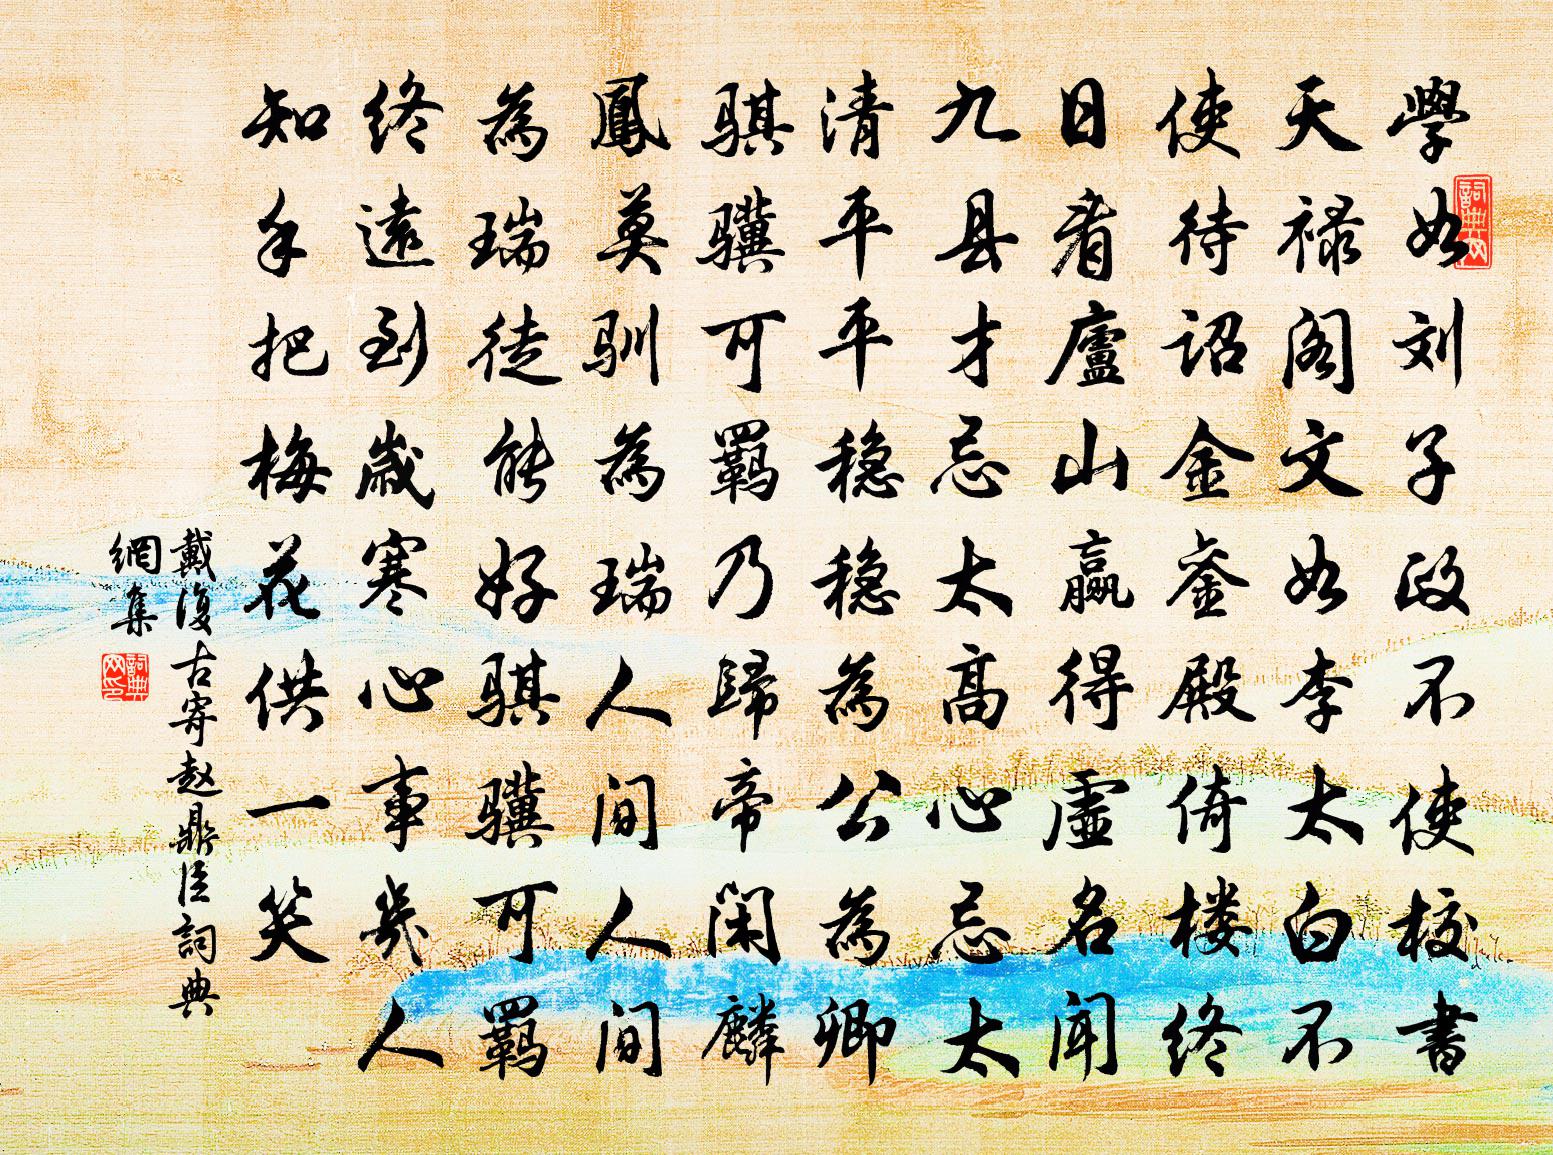 學如刘子政不使校書
天禄阁文如李太白不
使待诏金銮殿倚楼终
日看廬山赢得虚名闻
九县才忌太高心忌太
清平平稳稳為公為卿
骐骥可羁乃歸帝闲麟
鳳莫驯為瑞人间人间
為瑞徒能好骐骥可羁
终遠到歲寒心事幾人
知手把梅花供一笑
戴復古寄赵鼎臣詞典
網集
詞典网
詞典网印